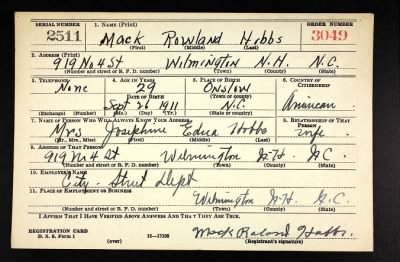 SERIAL NUMBER 1. NAME (Print) ORDER NUMBER
2511 Mack Rowland Hobbs 3049
(First) (Middle) (Last)
2. ADDRESS (Print)
919 No 4 St Wilmington N.H. N.C.
(Number and street or R. F. D. number) (Town) (County) (State)
3. TELEPHONE 4. AGE IN YEARS 5. PLACE OF BIRTH 6. COUNTRY OF CITIZENSHIP
None 29 Onslow
DATE OF BIRTH (Town or county)
Sept 26 1911 N.C. American
(Exchange) (Number) (Mo.) (Day) (Yr.) (State or country)
7. NAME OF PERSON WHO WILL ALWAYS KNOW YOUR ADDRESS 8. RELATIONSHIP OF THAT PERSON
Mrs Josephine Hobbs wife
(Mr., Mrs., Miss) (First) (Middle) (Last)
9. ADDRESS OF THAT PERSON
919 N 4 St Wilmington N.H. N.C.
(Number and street or R. F. D. number) (Town) (County) (State)
10. EMPLOYER'S NAME
City - Street Dept
11. PLACE OF EMPLOYMENT OR BUSINESS
Wilmington N.H. N.C.
(Number and street or R. F. D. number) (Town) (County) (State)
I AFFIRM THAT I HAVE VERIFIED ABOVE ANSWERS AND THAT THEY ARE TRUE.
REGISTRATION CARD
D. S. S. Form 1 (over) 16—17105 Mack Roland Hobbs
(Registrant's signature)